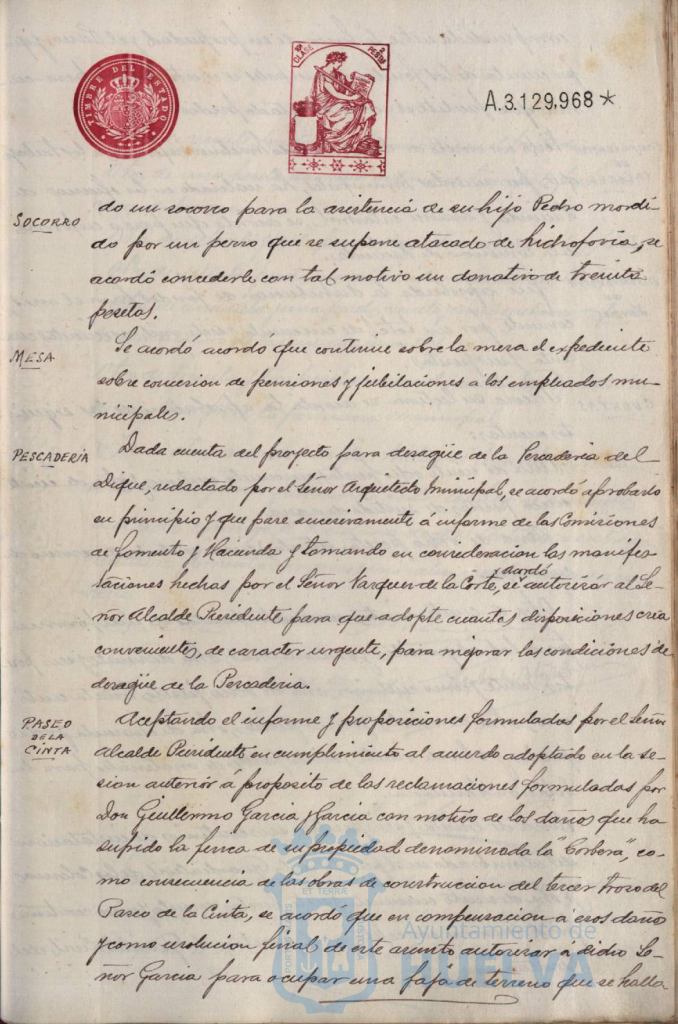 TIMBRE DEL ESTADO
10ª CLASE
PESETA
A.3.129,968 *
SOCORRO
do un socorro para la asistencia de su hijo Pedro mordi-
do por un perro que se supone atacado de hidrofovia, se
acordó concederle con tal motivo un donativo de treinta
pesetas.
MESA
Se acordó acordó que continue sobre la mesa el expediente
sobre concesion de pensiones y jubilaciones a los empleados mu-
nicipales.
PESCADERIA
Dada cuenta del proyecto para desagüe de la Pescaderia del
Dique, redactado por el Señor Arquitecto Municipal, se acordó aprobarlo
en principio y que pase sucesivamente á informe de las Comisiones
de Fomento y Hacienda y tomando en consideracion las manifes-
taciones hechas por el Señor Vazquez de la Corte, se acordó autorizar al Se-
ñor Alcalde Presidente para que adopte cuantas disposiciones crea
convenientes, de caracter urgente, para mejorar las condiciones de
desagüe de la Pescaderia.
PASEO
DE LA
CINTA
Aceptando el informe y proposiciones formuladas por el Señor
Alcalde Presidente en cumplimiento al acuerdo adoptado en la se-
sion anterior á proposito de las reclamaciones formuladas por
Don Guillermo Garcia y Garcia con motivo de los daños que ha
sufrido la finca de su propiedad denominada la "Corbera", co-
mo consecuencia de las obras de construccion del tercer trozo del
Paseo de la Cinta, se acordó que en compensacion á esos daños
y como resolucion final de este asunto autorizar á dicho Se-
ñor Garcia para ocupar una faja de terreno que se halla
Ayuntamiento de
HUELVA